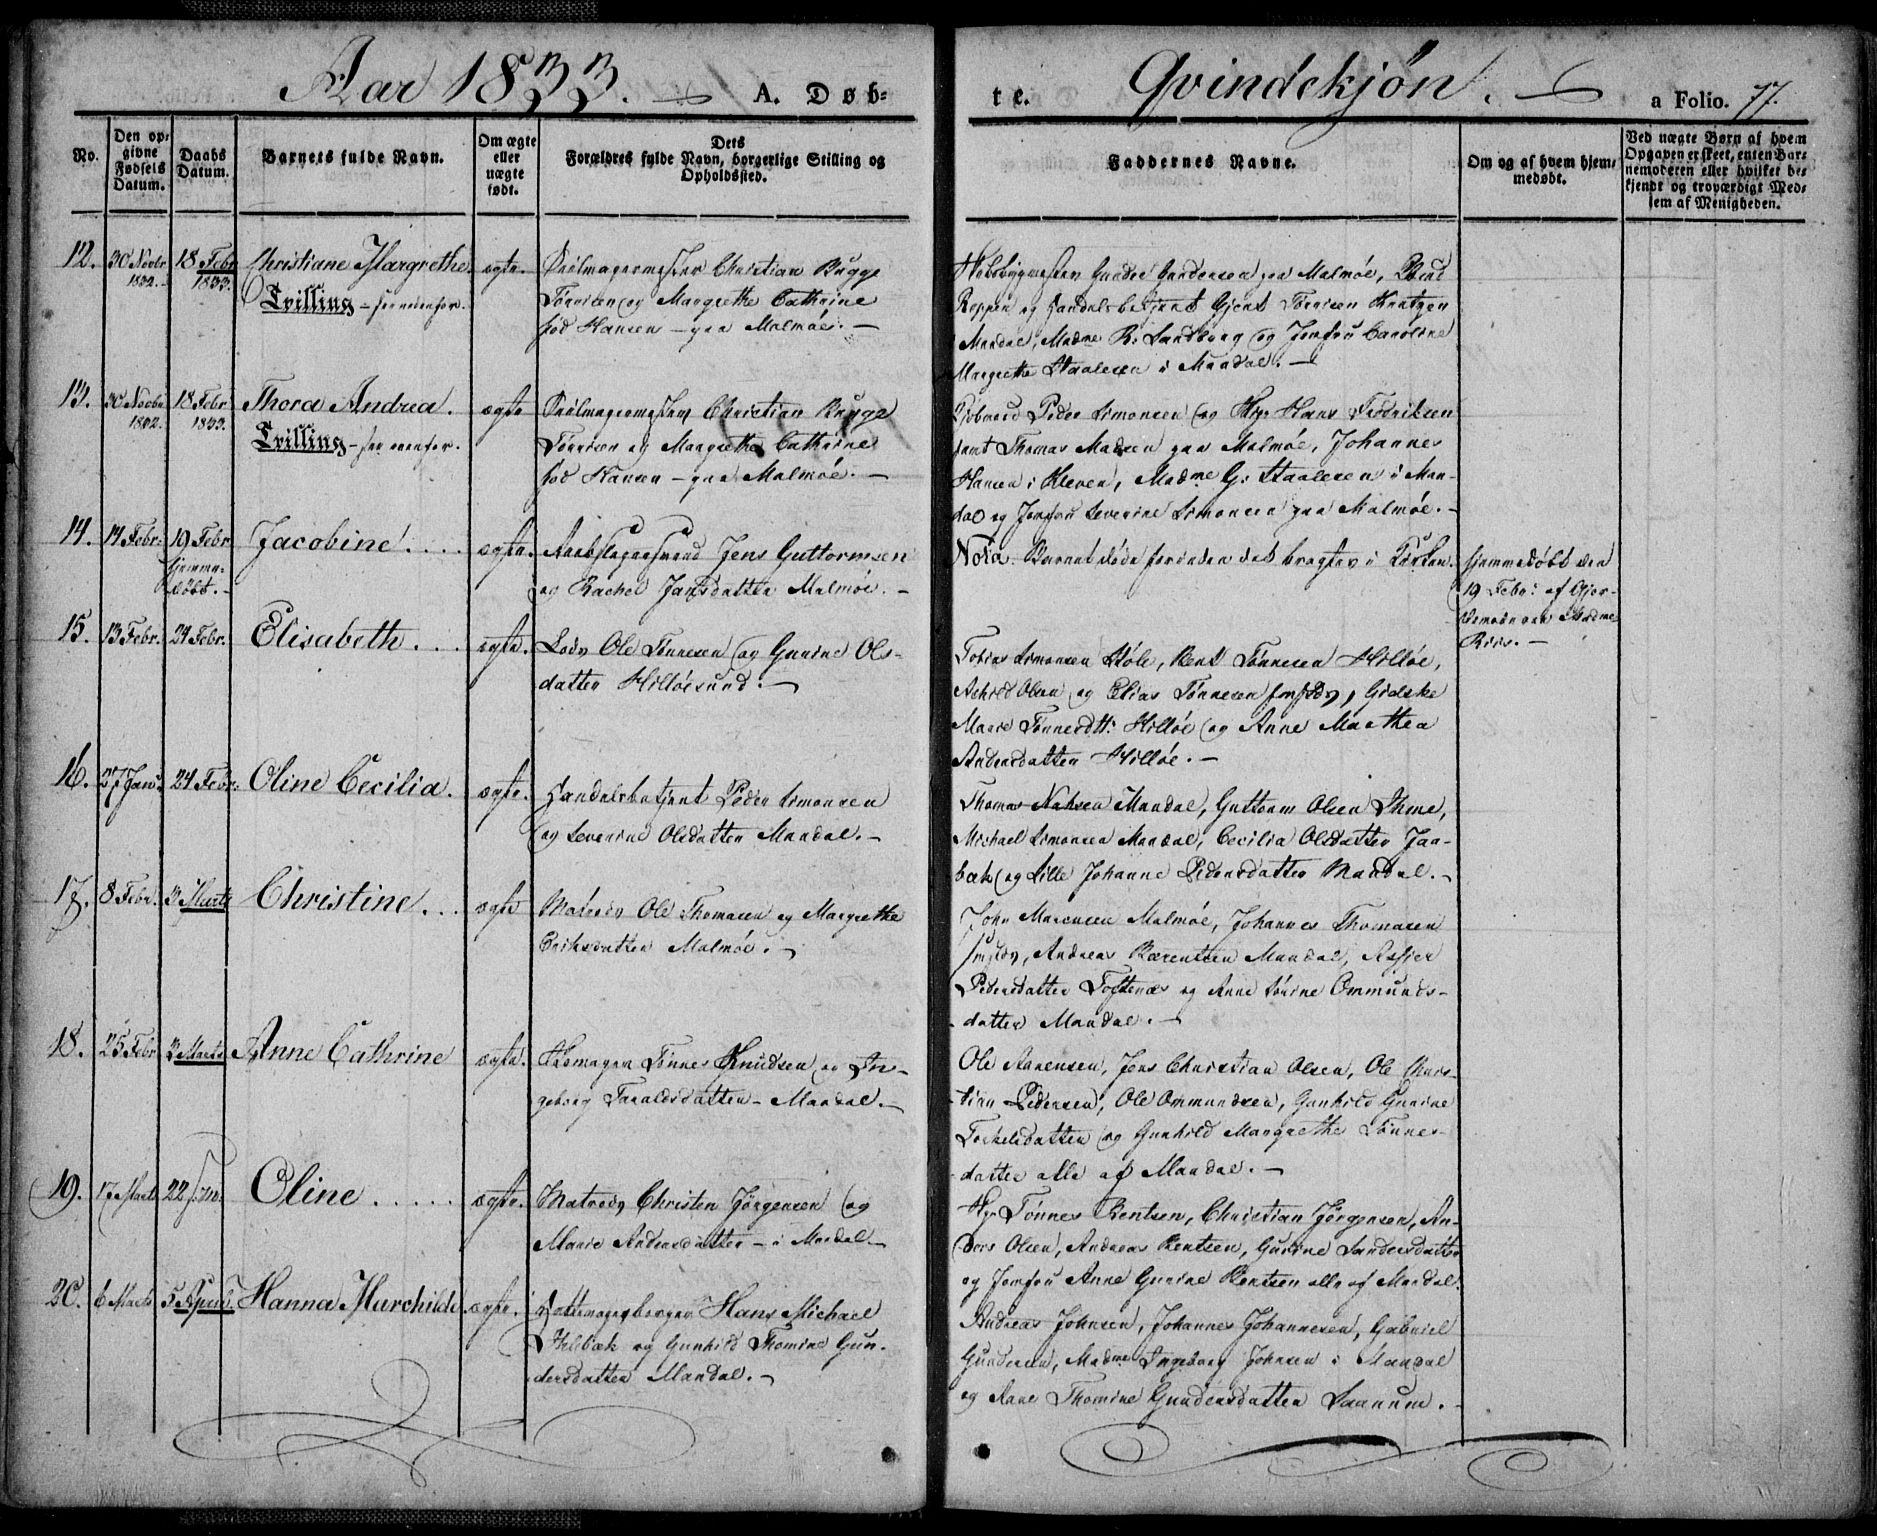 Aar 1833. A. Døb-
te. Qvindekjøn. a Folio. 77.
No.
Den op-
givne
Fødsels
Datum.
Daabs
Datum.
Barnets fulde Navn.
Om ægte
eller
uægte
født.
Dets
Forældres fulde Navn, borgerlige Stilling og
Opholdssted.
Faddernes Navne.
Om og af hvem hjem-
medøbt.
Ved uægte Børn af hvem
Opgaven er skeet, enten Bar-
nemoderen eller hvilket be-
kjendt og troværdigt Med-
lem af Menigheden.
12. 30 Novbr 1832. 18 Febr 1833. Christiane Margrethe. ægte.
Tvilling - see nenfor.
Seilmagermester Christian Bugge
Tørrisen og Margrethe Cathrine
fød Hansen - paa Malmøe. -
Gundersen paa Malmøe,
Reppen og Handelsbetjent Gjert Tørrisen
Mandal, Madme R. Sandborg og Jomfru Caroline
Margrethe Staalesen i Mandal. -
13. 30 Novbr 1832. 18 Febr 1833. Thora Andrea. ægte
Tvilling - see ovenfor.
Seilmagermester Christian Bugge
Tørrisen og Margrethe Cathrine
fød Hansen - paa Malmøe. -
Kjøbmand Peder Simonsen og Hr Hans Fredriksen
samt Thomas Madsen paa Malmøe, Johannes
Hansen i Kleven, Madme G. Staalesen i Man-
dal og Jomfru Severine Simonsen paa Malmøe. -
14. 14 Febr. 19 Febr hjemme-
døbt. - Jacobine. ægte.
Jens Guttormsen
og Rachel Jansdatter Malmøe. -
Nota. Barnet døde forinden det bragtes i Kirken.
hjemmedøbt den
19 Febr: af Gjor-
demoderen Madme
Riis. -
15. 13 Febr. 24 Febr. Elisabeth. ægte.
Lods Ole Tønnesen og Gunine Ols-
datter Hilløesund. -
Tobias Simonsen Støle, Bent Tønnesen Hilløe,
Askild Olsen og Elias Tønnesen , Gidske
Marie Tønnesdtt: Hilløe og Anne Marthea
Andersdatter Hilløe. -
16. 27 Jan. 24 Febr. Oline Cecilia. ægte.
Handelsbetjent Peder Simonsen
og Severine Olsdatter Mandal. -
Thomas Mandal, Guttorm Olsen Ihme,
Michael Simonsen Mandal, Cecilia Olsdatter Jaa-
bæk og Lille Johanne Pedersdatter Mandal. -
17. 8 Febr. 3 Marts Christine. ægte
Matros Ole Thomasen og Margrethe
Eriksdatter Malmøe. -
John Marcusen Malmøe, Johannes Thomasen
Andreas Bærentsen Mandal, Assier
Pedersdatter Toftenæs og Anne Sørine Ommunds-
datter Mandal. -
18. 25 Febr 3 Marts Anne Cathrine ægte.
Tønnes Knudsen og In-
geborg Taraldsdatter - Mandal. -
Ole Aanensen, Jens Christian Olsen, Ole Chris-
tian Pedersen, Ole Ommundsen, Gunhild Gunine
Torkelsdatter og Gunhild Margrethe Tønnes-
datter alle af Mandal. -
19. 17 Marts 22 s.m. Oline. ægte.
Matros Christen Jørgensen og
Marie Andreasdatter - i Mandal. -
Hr Tønnes Bentsen, Christian Jørgensen, An-
ders Olsen, Andreas Bentsen, Gunine Sandersdatter
og Jomfru Anne Gunine Bentsen alle af Mandal.
20. 6 Marts 5 April. Hanna Marchilde. ægte.
Pottemagerborger Hans Michael
og Gunhild Thomine Gun-
dersdatter Mandal. -
Andreas Johnsen, Johannes Johannesen, Gabriel
Gundersen, Madme Ingeborg Johnsen i Mandal
og Anne Thomine Gundersdatter Saanum. -